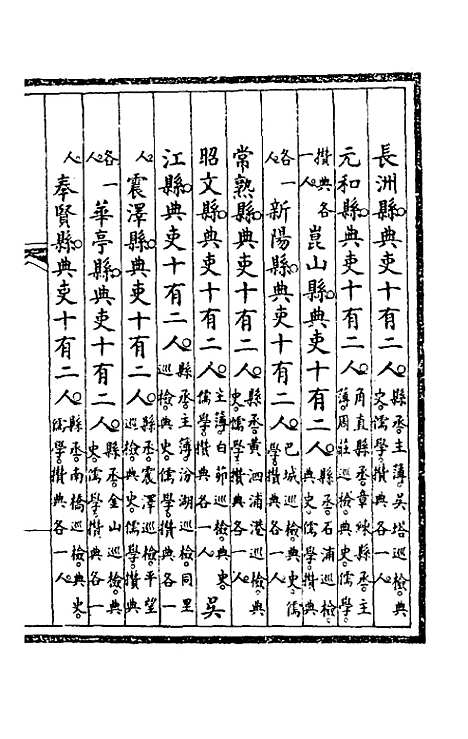 長洲縣典吏十有二人縣丞主薄吳塔巡檢典史儒學攢典各一人
元和縣典吏十有二人角直縣丞章練縣丞主薄周莊巡檢典史儒學
攢典各一人崑山縣典吏十有二人縣丞石浦巡檢典史儒學攢典
各一人新陽縣典吏十有二人巴城巡檢典史儒學攢典各一人
常熟縣典吏十有二人縣丞黃泗浦港巡檢典史儒學攢典各一人
昭文縣典吏十有二人主薄白茆巡檢典史儒學攢典各一人吳
江縣典吏十有二人縣丞主薄汾湖巡檢同里巡檢典史儒學攢典各一
人震澤縣典吏十有二人縣丞震澤巡檢平望巡檢典史儒學攢典
各一人華亭縣典吏十有二人縣丞金山巡檢典史儒學攢典各一
人奉賢縣典吏十有二人縣丞南橋巡檢典史儒學攢典各一人